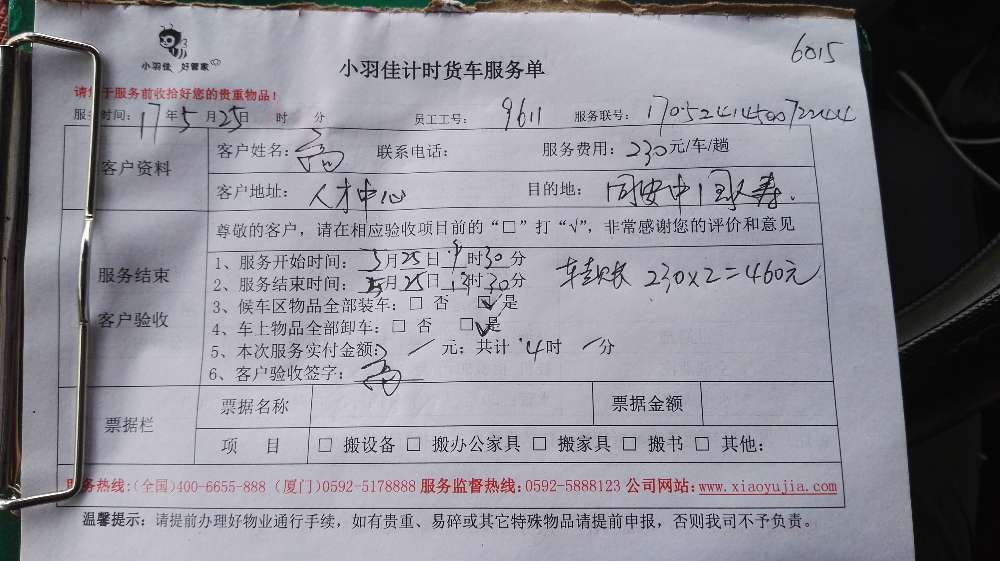 6015
小羽佳 好管家
小羽佳计时货车服务单
请您于服务前收拾好您的贵重物品！
服务时间：17年5月25日 时 分 员工工号：9611 服务联号：
客户资料
客户姓名： 联系电话： 服务费用：230元/车/趟
客户地址：人才中心 目的地：同安中国人寿.
尊敬的客户，请在相应验收项目前的“□”打“√”，非常感谢您的评价和意见
服务结束
客户验收
1、服务开始时间：5月25日 9时30分
2、服务结束时间：5月25日 13时30分
230×2=460元
3、候车区物品全部装车：□ 否 □ 是
4、车上物品全部卸车：□ 否 □ 是
5、本次服务实付金额：/元；共计 4时 /分
6、客户验收签字：
票据栏
票据名称 票据金额
项 目 □ 搬设备 □ 搬办公家具 □ 搬家具 □ 搬书 □ 其他：
服务热线：(全国)400-6655-888 (厦门)0592-5178888 服务监督热线：0592-5888123 公司网站：www.xiaoyujia.com
温馨提示：请提前办理好物业通行手续，如有贵重、易碎或其它特殊物品请提前申报，否则我司不予负责。